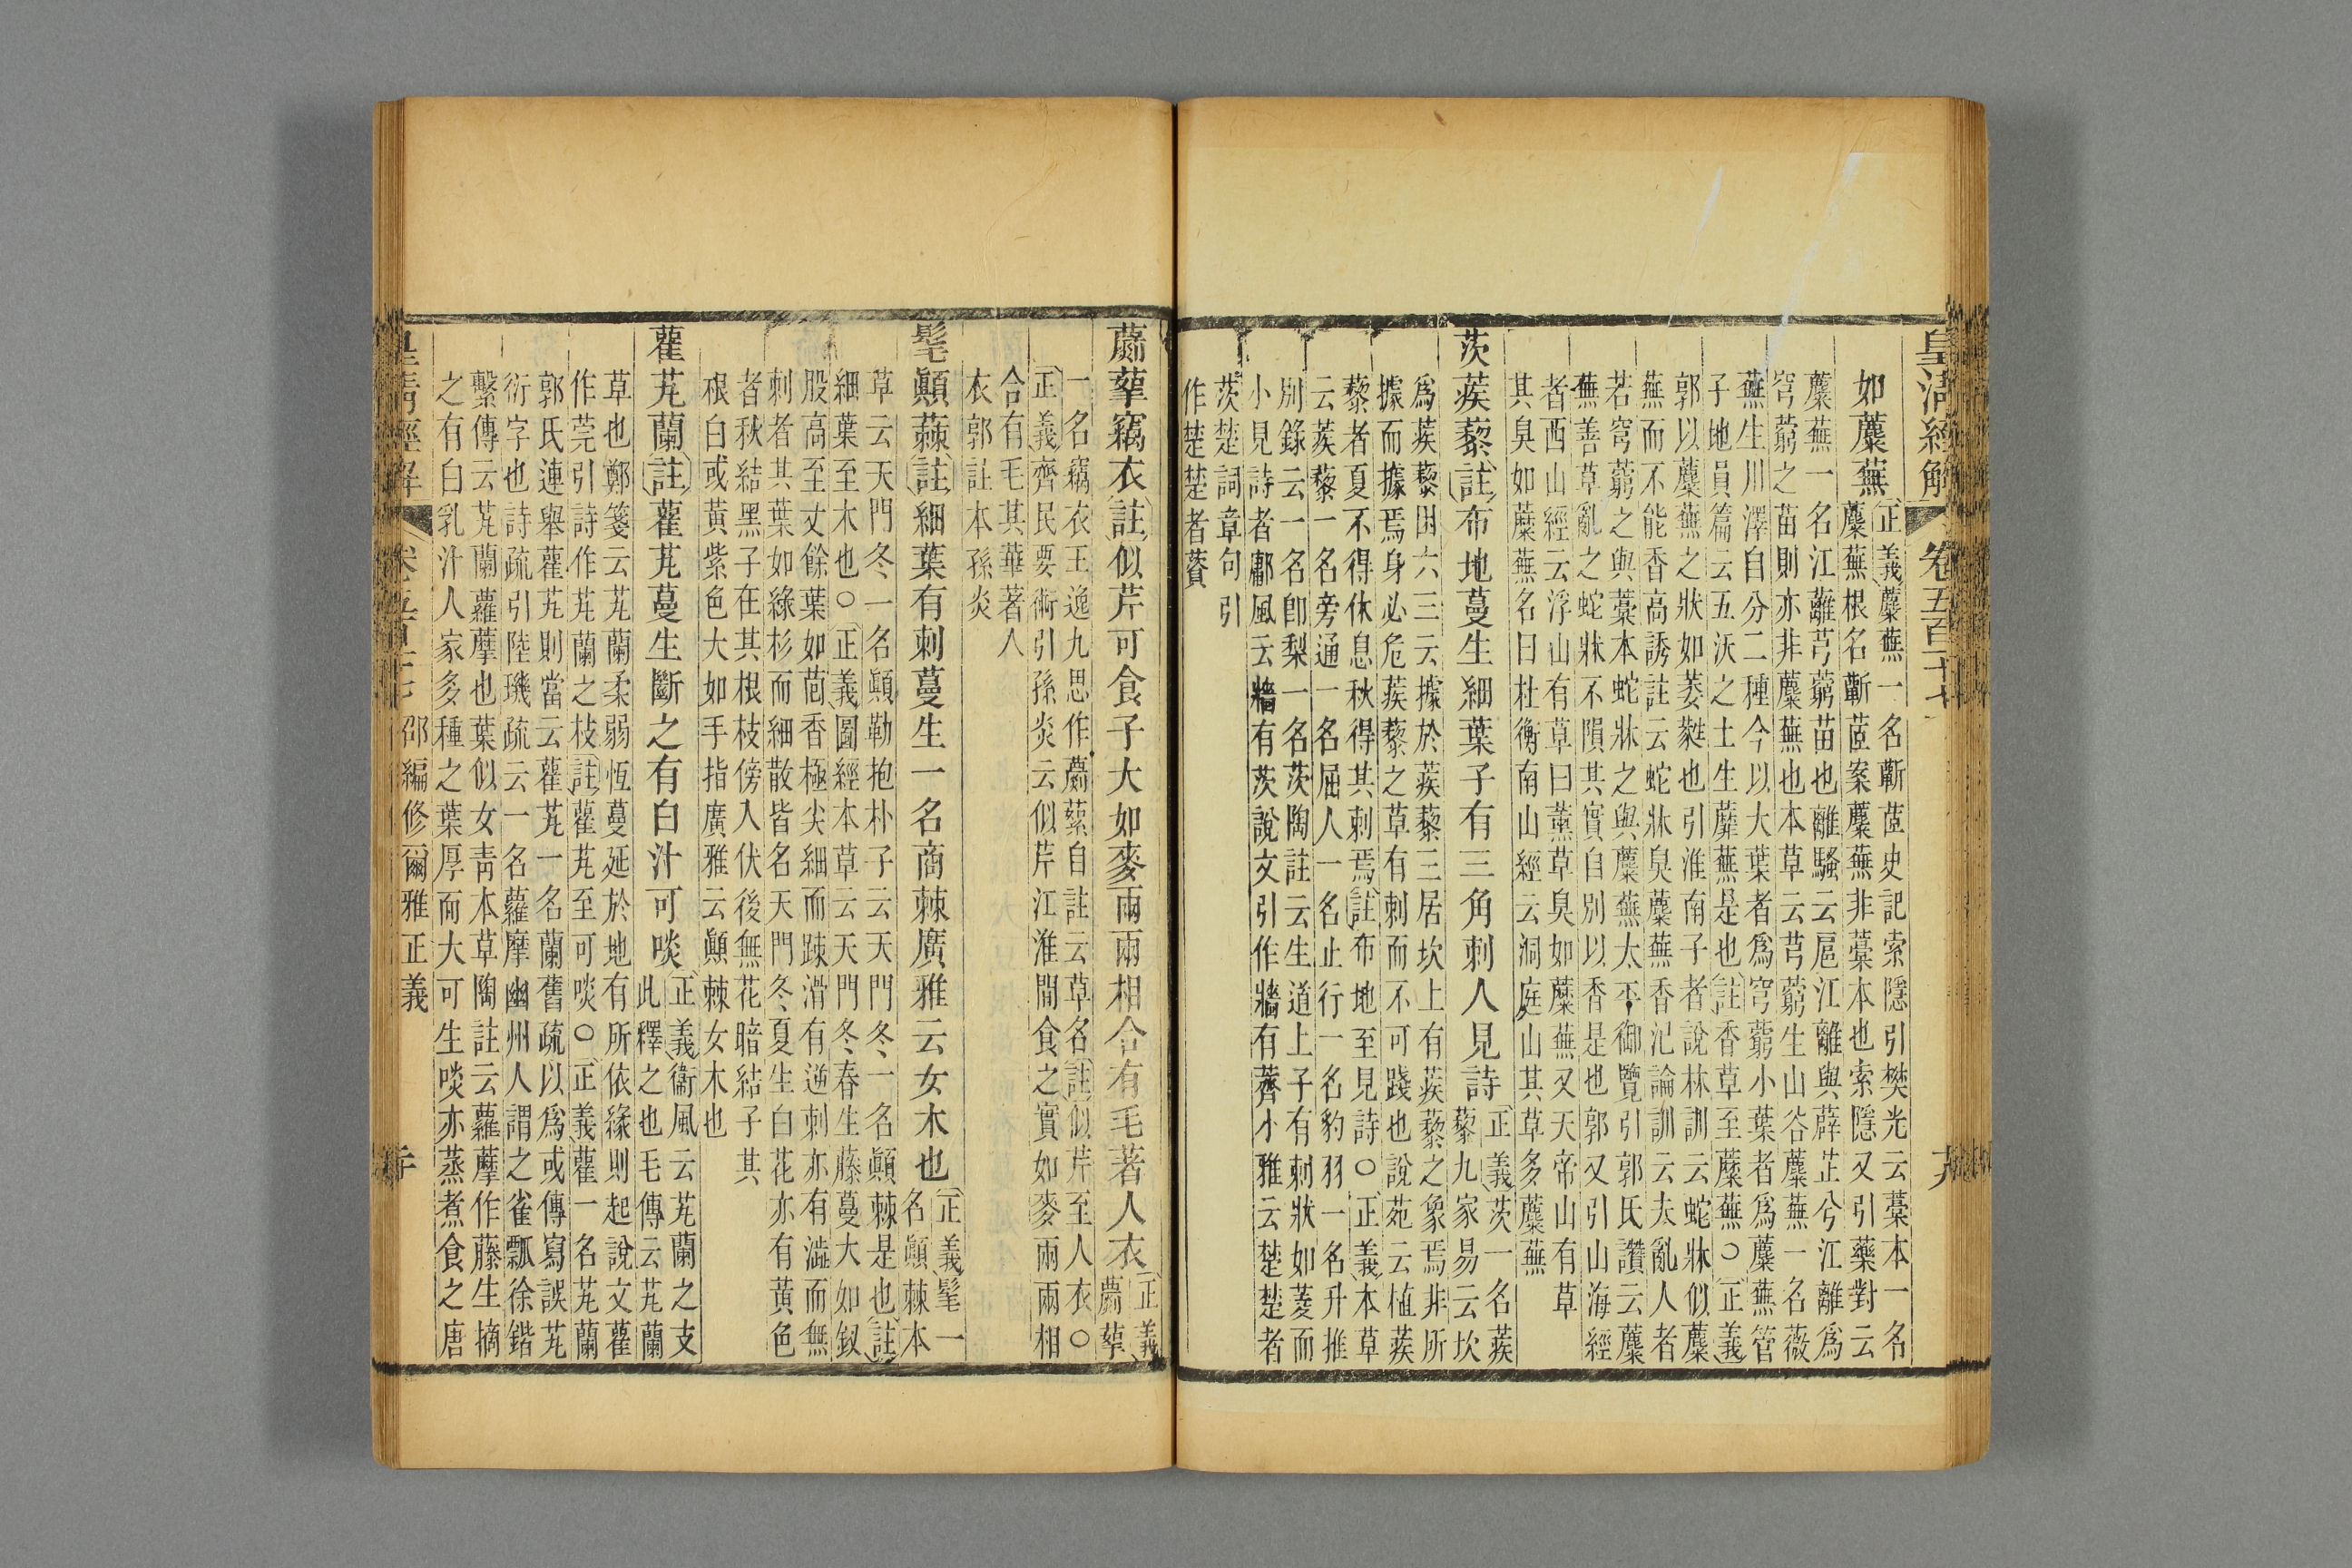 皇清經解
卷五百二十七
十九
如蘪蕪
正義蘪蕪一名蘄茝史記索隱引樊光云藁本一名
蘪蕪根名蘄茝案蘪蕪非藁本也索隱又引藥對云
蘪蕪一名江蘺芎藭苗也離騷云扈江離與薜芷兮江離爲
穹藭之苗則亦非蘪蕪也本草云芎藭生山谷蘪蕪一名薇
蕪生川澤自分二種今以大葉者爲穹藭小葉者爲蘪蕪管
子地員篇云五沃之土生蘼蕪是也註香草至蘪蕪○正義
郭以蘪蕪之狀如萎蕤也引淮南子者說林訓云蛇牀似蘪
蕪而不能香高誘註云蛇牀臭蘪蕪香氾論訓云夫亂人者
若穹藭之與藁本蛇牀之與蘪蕪太平御覽引郭氏讚云蘪
蕪善草亂之蛇牀不隕其實自別以香是也郭又引山海經
者西山經云浮山有草曰薰草臭如蘪蕪又天帝山有草
其臭如蘪蕪名曰杜衡南山經云洞庭山其草多蘪蕪
茨蒺藜註布地蔓生細葉子有三角刺人見詩
正義茨一名蒺
藜九家易云坎
爲蒺藜困六三云據於蒺藜三居坎上有蒺藜之象焉非所
據而據焉身必危蒺藜之草有刺而不可踐也說苑云植蒺
藜者夏不得休息秋得其刺焉註布地至見詩○正義本草
云蒺藜一名旁通一名屈人一名止行一名豹羽一名升推
別錄云一名卽梨一名茨陶註云生道上子有刺狀如菱而
小見詩者鄘風云牆有茨說文引作牆有薺小雅云楚楚者
茨楚詞章句引
作楚楚者薋
蘮蒘竊衣註似芹可食子大如麥兩兩相合有毛著人衣
正義
蘮蒘
一名竊衣王逸九思作蘮蒘自註云草名註似芹至人衣○
正義齊民要術引孫炎云似芹江淮間食之實如麥兩兩相
合有毛其華著人
衣郭註本孫炎
髦顚蕀註細葉有刺蔓生一名商棘廣雅云女木也
正義髦一
名顚棘本
草云天門冬一名顚勒抱朴子云天門冬一名顚棘是也註
細葉至木也○正義圖經本草云天門冬春生藤蔓大如釵
股高至丈餘葉如茴香極尖細而疎滑有逆刺亦有澁而無
刺者其葉如綠杉而細散皆名天門冬夏生白花亦有黃色
者秋結黑子在其根枝傍入伏後無花暗結子其
根白或黃紫色大如手指廣雅云顚棘女木也
雚芄蘭註雚芄蔓生斷之有白汁可啖
正義衞風云芄蘭之支
此釋之也毛傳云芄蘭
草也鄭箋云芄蘭柔弱恆蔓延於地有所依緣則起說文雚
作莞引詩作芄蘭之枝註雚芄至可啖○正義雚一名芄蘭
郭氏連舉雚芄則當云雚芄一名蘭舊疏以爲或傳寫誤芄
衍字也詩疏引陸璣疏云一名蘿摩幽州人謂之雀瓢徐鍇
繫傳云芄蘭蘿藦也葉似女靑本草陶註云蘿藦作藤生摘
之有白乳汁人家多種之葉厚而大可生啖亦蒸煮食之唐
皇清經解
邵編修爾雅正義